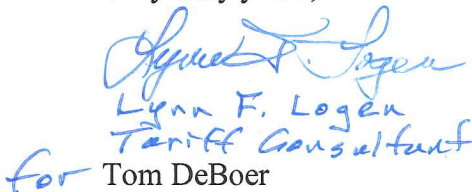 Lynn F. Logen
Lynn F. Logen
Tariff Consultant
for Tom DeBoer